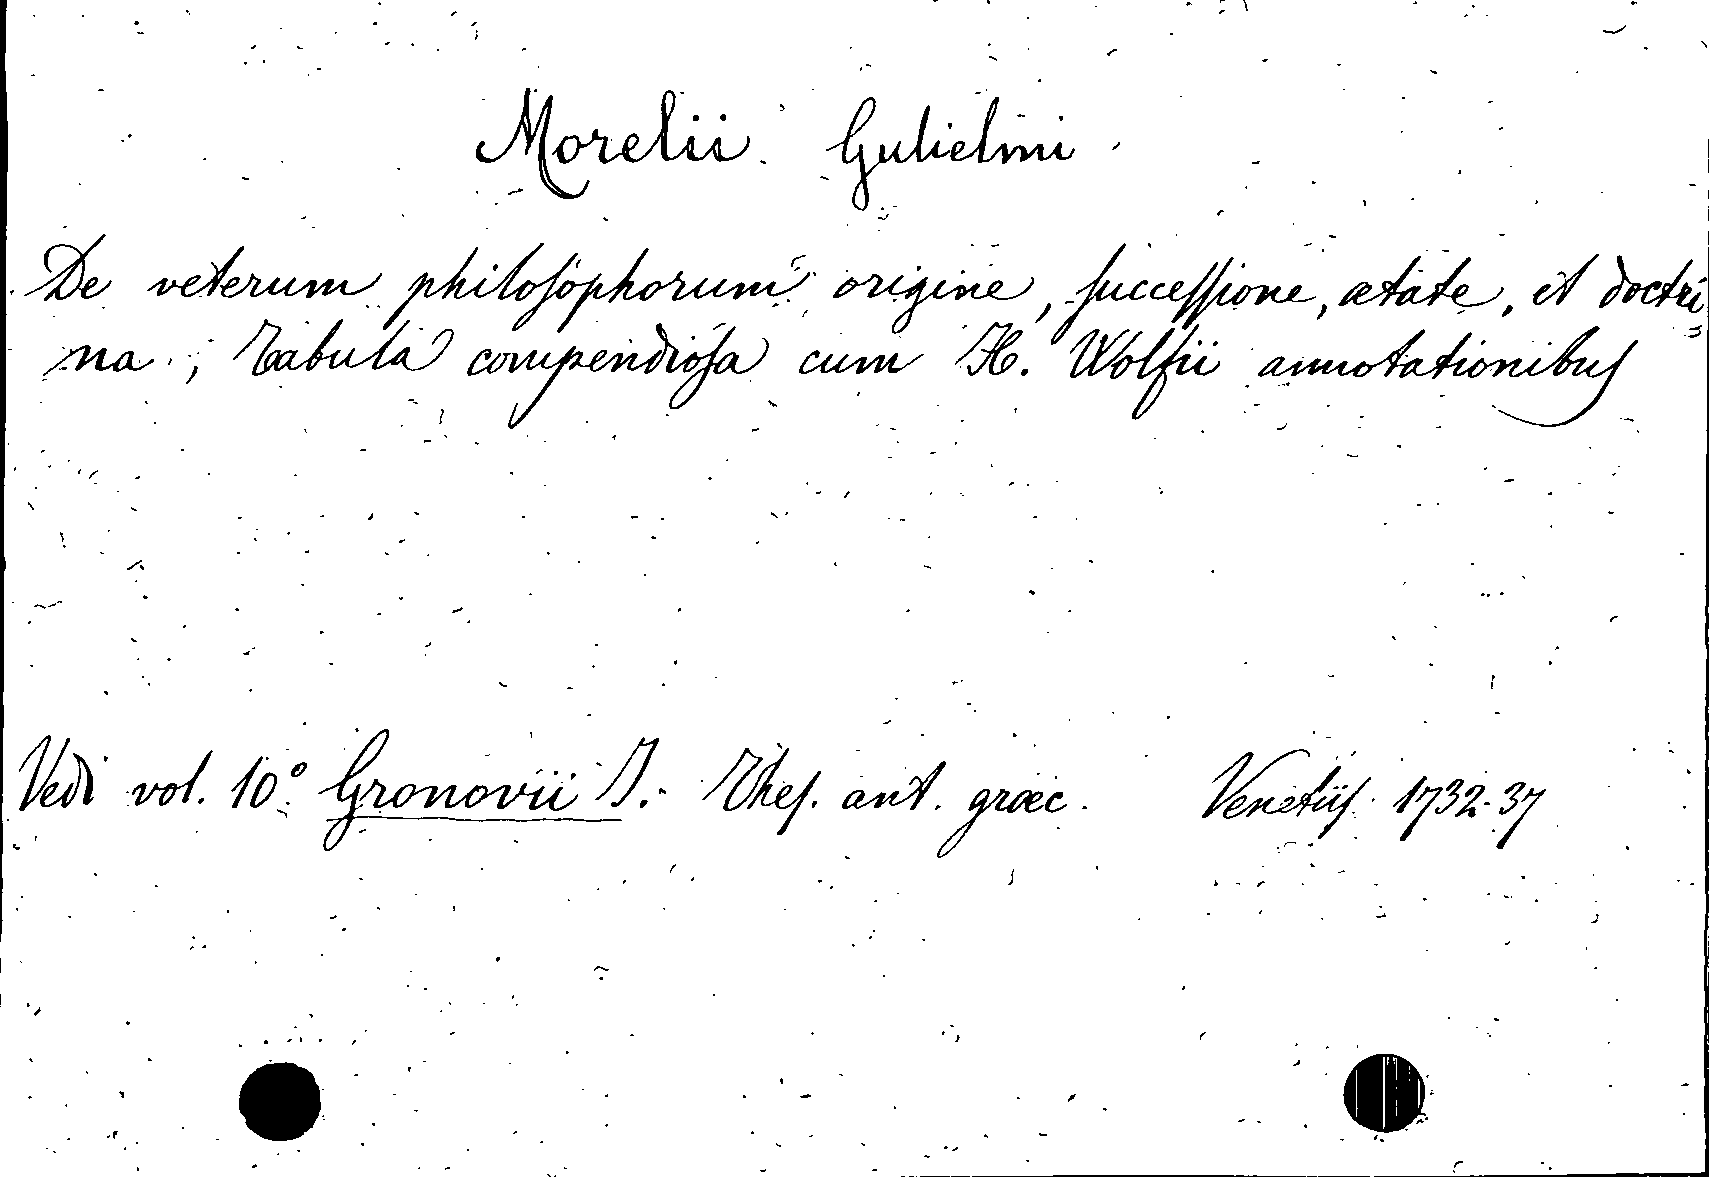 Morelii Gulielmi
De veterum philosophorum origine, successione, ætate, et doctri=
na, Tabula compendiosa cum H. Wolfii annotationibus
Vedi vol. 10° Gronovii J. Thes. ant. græc. Venetiis 1732-37